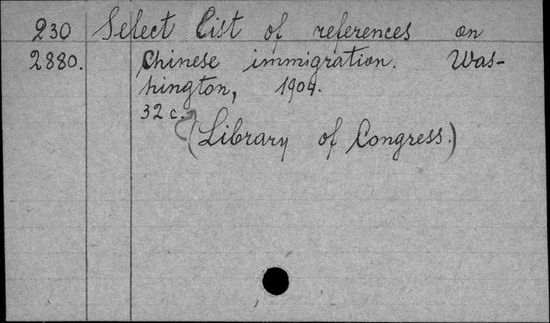 230 Select List of references on
2880. Chinese immigration. Was-
hington, 1904.
32 c.
(Library of Congress.)